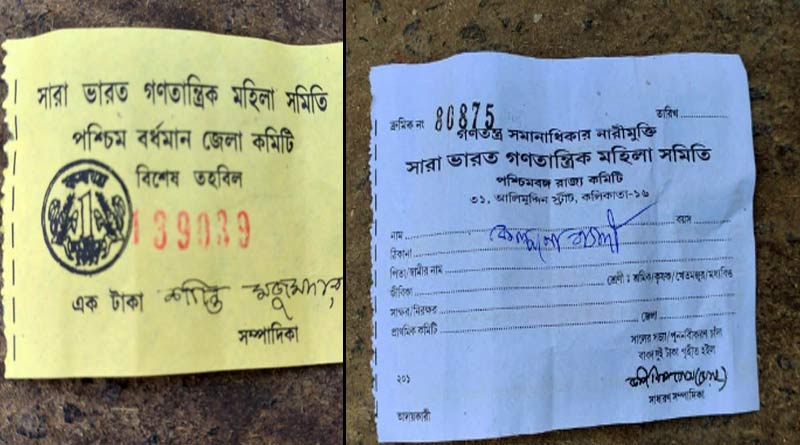 সারা ভারত গণতান্ত্রিক মহিলা সমিতি
পশ্চিম বর্ধমান জেলা কমিটি
বিশেষ তহবিল
1
139039
এক টাকা
সম্পাদিকা
ক্রমিক নং 80875 তারিখ
গণতন্ত্র সমানাধিকার নারীমুক্তি
সারা ভারত গণতান্ত্রিক মহিলা সমিতি
পশ্চিমবঙ্গ রাজ্য কমিটি
৩১, আলিমুদ্দিন স্ট্রীট, কলিকাতা-১৬
নাম বয়স
ঠিকানা
পিতা/স্বামীর নাম
জীবিকা শ্রেণী : শ্রমিক/কৃষক/খেতমজুর/মধ্যবিত্ত
সাক্ষর/নিরক্ষর
প্রাথমিক কমিটি জেলা
সালের সভ্য/পুনর্নবীকরণ চাঁদা
বাবদ দুই টাকা গৃহীত হইল
২০১
সাধারণ সম্পাদিকা
আদায়কারী